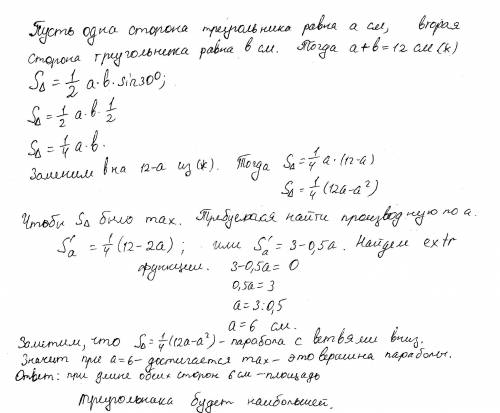 Пусть одна сторона треугольника равна a см, вторая
сторона треугольника равна b см. Тогда a+b=12 см (*)
S△ = 1/2 a·b·sin30°;
S△ = 1/2 a·b·1/2
S△ = 1/4 a·b.
Заменим b на 12-a из (*). Тогда S△ = 1/4 a·(12-a)
S△ = 1/4 (12a-a²)
Чтобы S△ было max. Требуется найти производную по a.
S'a = 1/4 (12-2a); или S'a = 3-0,5a. Найдем extr
функции. 3-0,5a=0
0,5a=3
a=3:0,5
a=6 см.
Заметим, что S△=1/4(12a-a²) - парабола с ветвями вниз.
Значит при a=6 - достигается max - это вершина параболы.
Ответ: при длине обеих сторон 6 см - площадь
треугольника будет наибольшей.